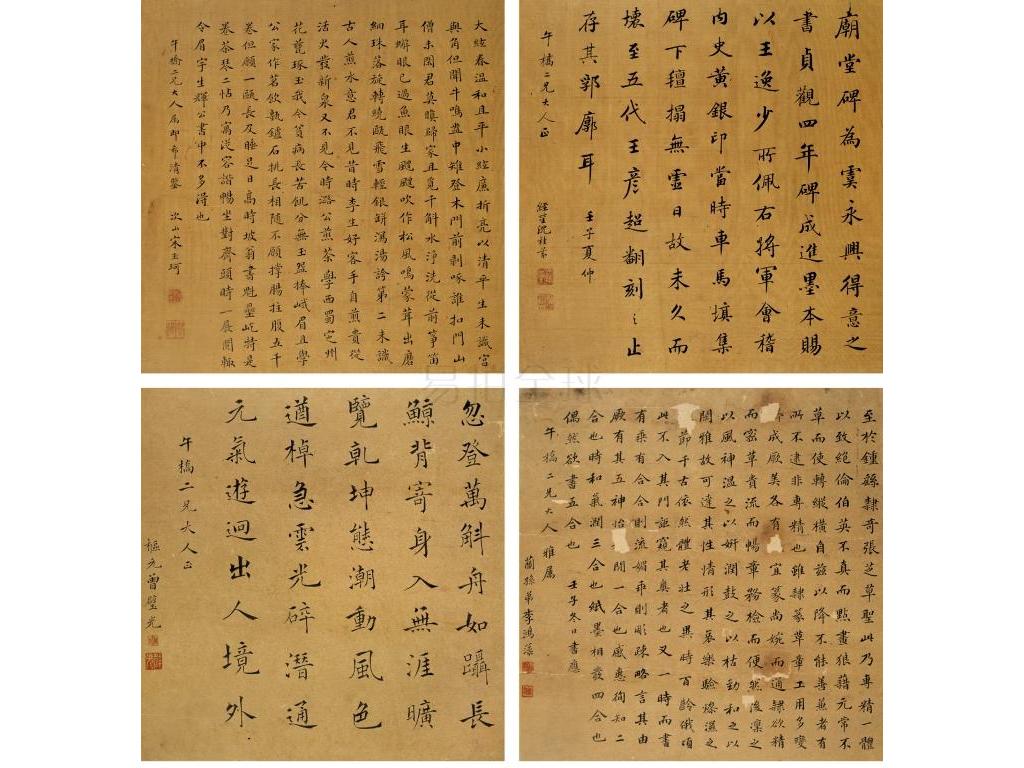 廟堂碑為虞永興得意之
書貞觀四年碑成進墨本賜
以王逸少所佩右將軍會稽
內史黃銀印當時車馬填集
碑下氊搨無虛日故未久而
壞至五代王彥超翻刻之止
存其郭廓耳 壬子夏仲
午橋二兄大人正
經笙沈桂芬
大絃春溫和且平小絃廉折亮以清平生未識宮
與角但聞牛鳴盎中雉登木門前剝啄誰扣門山
僧未閒君莫瞋歸家且覓千斛水淨洗從前箏笛
耳蠏眼已過魚眼生颼颼吹作松風鳴蒙茸出磨
細珠落旋轉繞甌飛雪輕銀缾瀉湯誇第二未識
古人煎水意君不見昔時李生好客手自煎貴從
活火發新泉又不見今時潞公煎茶學西蜀定州
花甆琢玉我今貧病長苦飢分無玉盌捧峨眉且學
公家作茗飲甎鑪石銚長相隨不願撐腸拄腹五千
卷但願一甌長及睡足日高時坡翁書魁壘屹特是
卷茶琴二帖乃寫從容諧暢坐對齋頭時一展閱輒
令眉宇生輝公書中不多得也
午橋二兄大人屬即希清鑒 次山宋玉珂
至於鍾繇隸奇張芝草聖此乃專精一體
以致絕倫伯英不真而點畫狼藉元常不
草而使轉縱橫自兹以降不能善兼者有
所不逮非專精也雖隸篆草章工用多變
成厥美各有宜篆尚婉而通隸欲精
而密草貴流而暢章務檢而便然後凜之
以風神溫之以妍潤鼓之以枯勁和之以
閒雅故可達其性情形其哀樂驗燥濕之
節千古依然體老壯之異時百齡俄頃
此不入其門詎窺其奧者也又一時而書
有乖有合合則流媚乖則彫疎略言其由
厥有其五神怡務閒一合也感惠徇知二
合也時和氣潤三合也紙墨相發四合也
偶然欲書五合也 壬子冬日書應
午橋二兄大人 雅屬
蘭孫弟李鴻藻
忽登萬斛舟如躡長
鯨背寄身入無涯曠
覽乾坤態潮動風色
遒棹急雲光碎潛通
元氣遊迴出人境外
午橋二兄大人正
樞元曾璧光
易拍全球